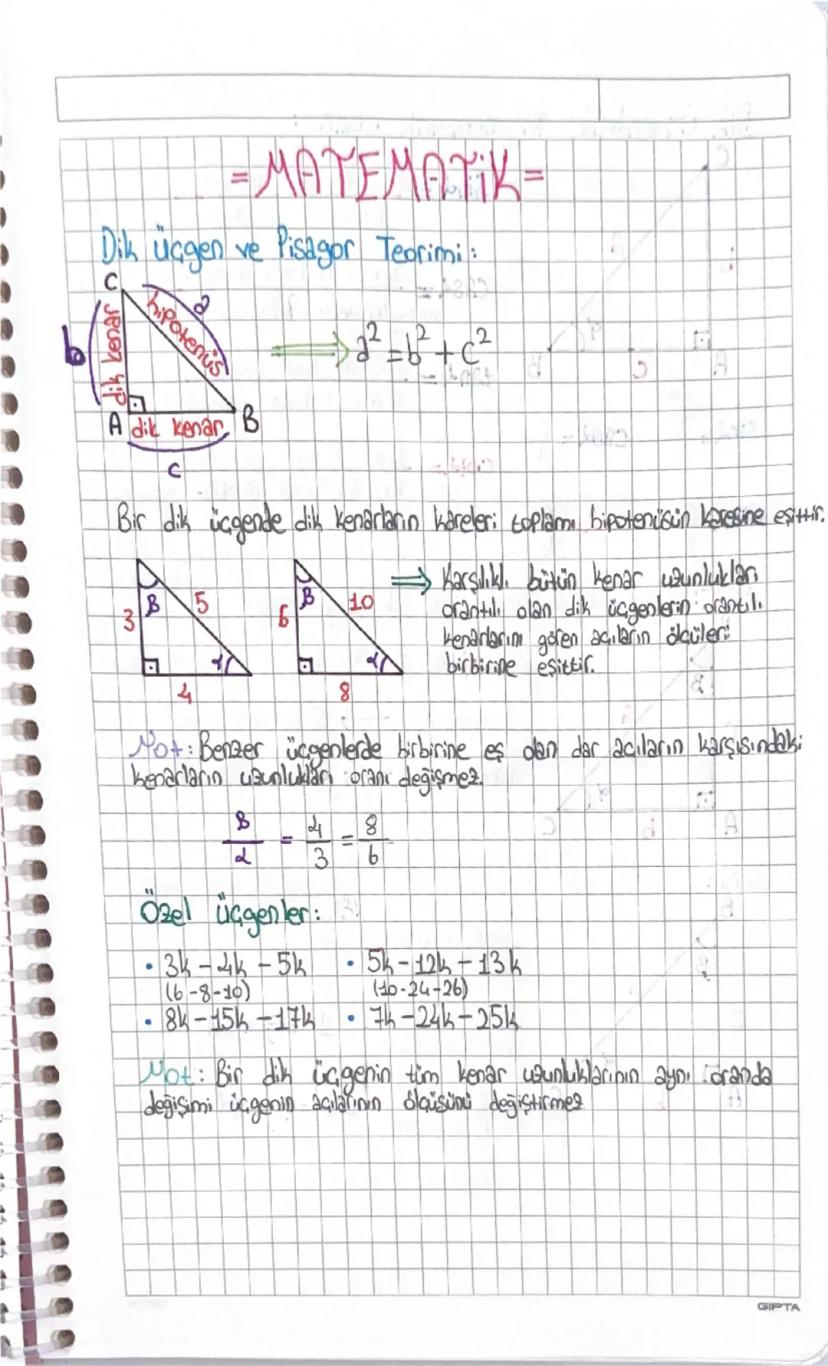 = MATEMATiK =
Dik üçgen ve Pisagor Teorimi:
C
a
hipotenüs
b
dik kenar
a² = b² + c²
A dik kenar B
c
Bir dik üçgende dik kenarların kareleri toplamı hipotenüsün karesine eşittir.
3 B 5 α 4
6 B 10 α 8
⇒ Karşılıklı bütün kenar uzunlukları
orantılı olan dik üçgenlerin orantılı
kenarlarını gören açıların ölçüleri
birbirine eşittir.
Not: Benzer üçgenlerde birbirine eş olan dar açıların karşısındaki
kenarların uzunlukları oranı değişmez.
B/α = 4/3 = 8/6
Özel üçgenler:
• 3k - 4k - 5k • 5k - 12k - 13k
(6-8-10) (10-24-26)
• 8k - 15k - 17k • 7k - 24k - 25k
Not: Bir dik üçgenin tüm kenar uzunluklarının aynı oranda
değişimi üçgenin açılarının ölçüsünü değiştirmez
GIPTA